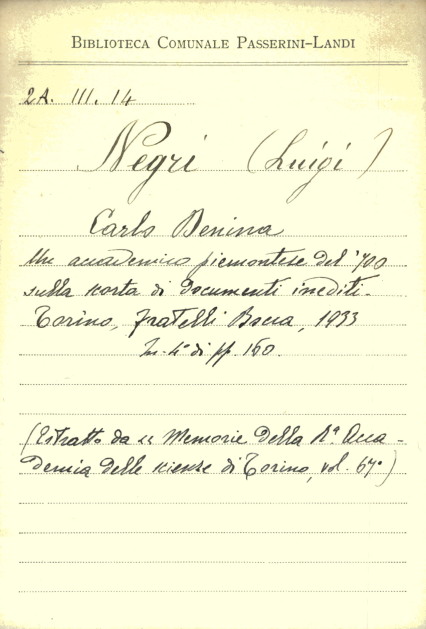 BIBLIOTECA COMUNALE PASSERINI-LANDI
2A. III. 14
Negri (Luigi)
Carlo Denina
Un accademico piemontese del '700
sulla scorta di documenti inediti.
Torino, Fratelli Bocca, 1933
In-4° di pp. 160.
(Estratto da "Memorie della Rª Acca-
demia delle scienze di Torino, vol. 67°)